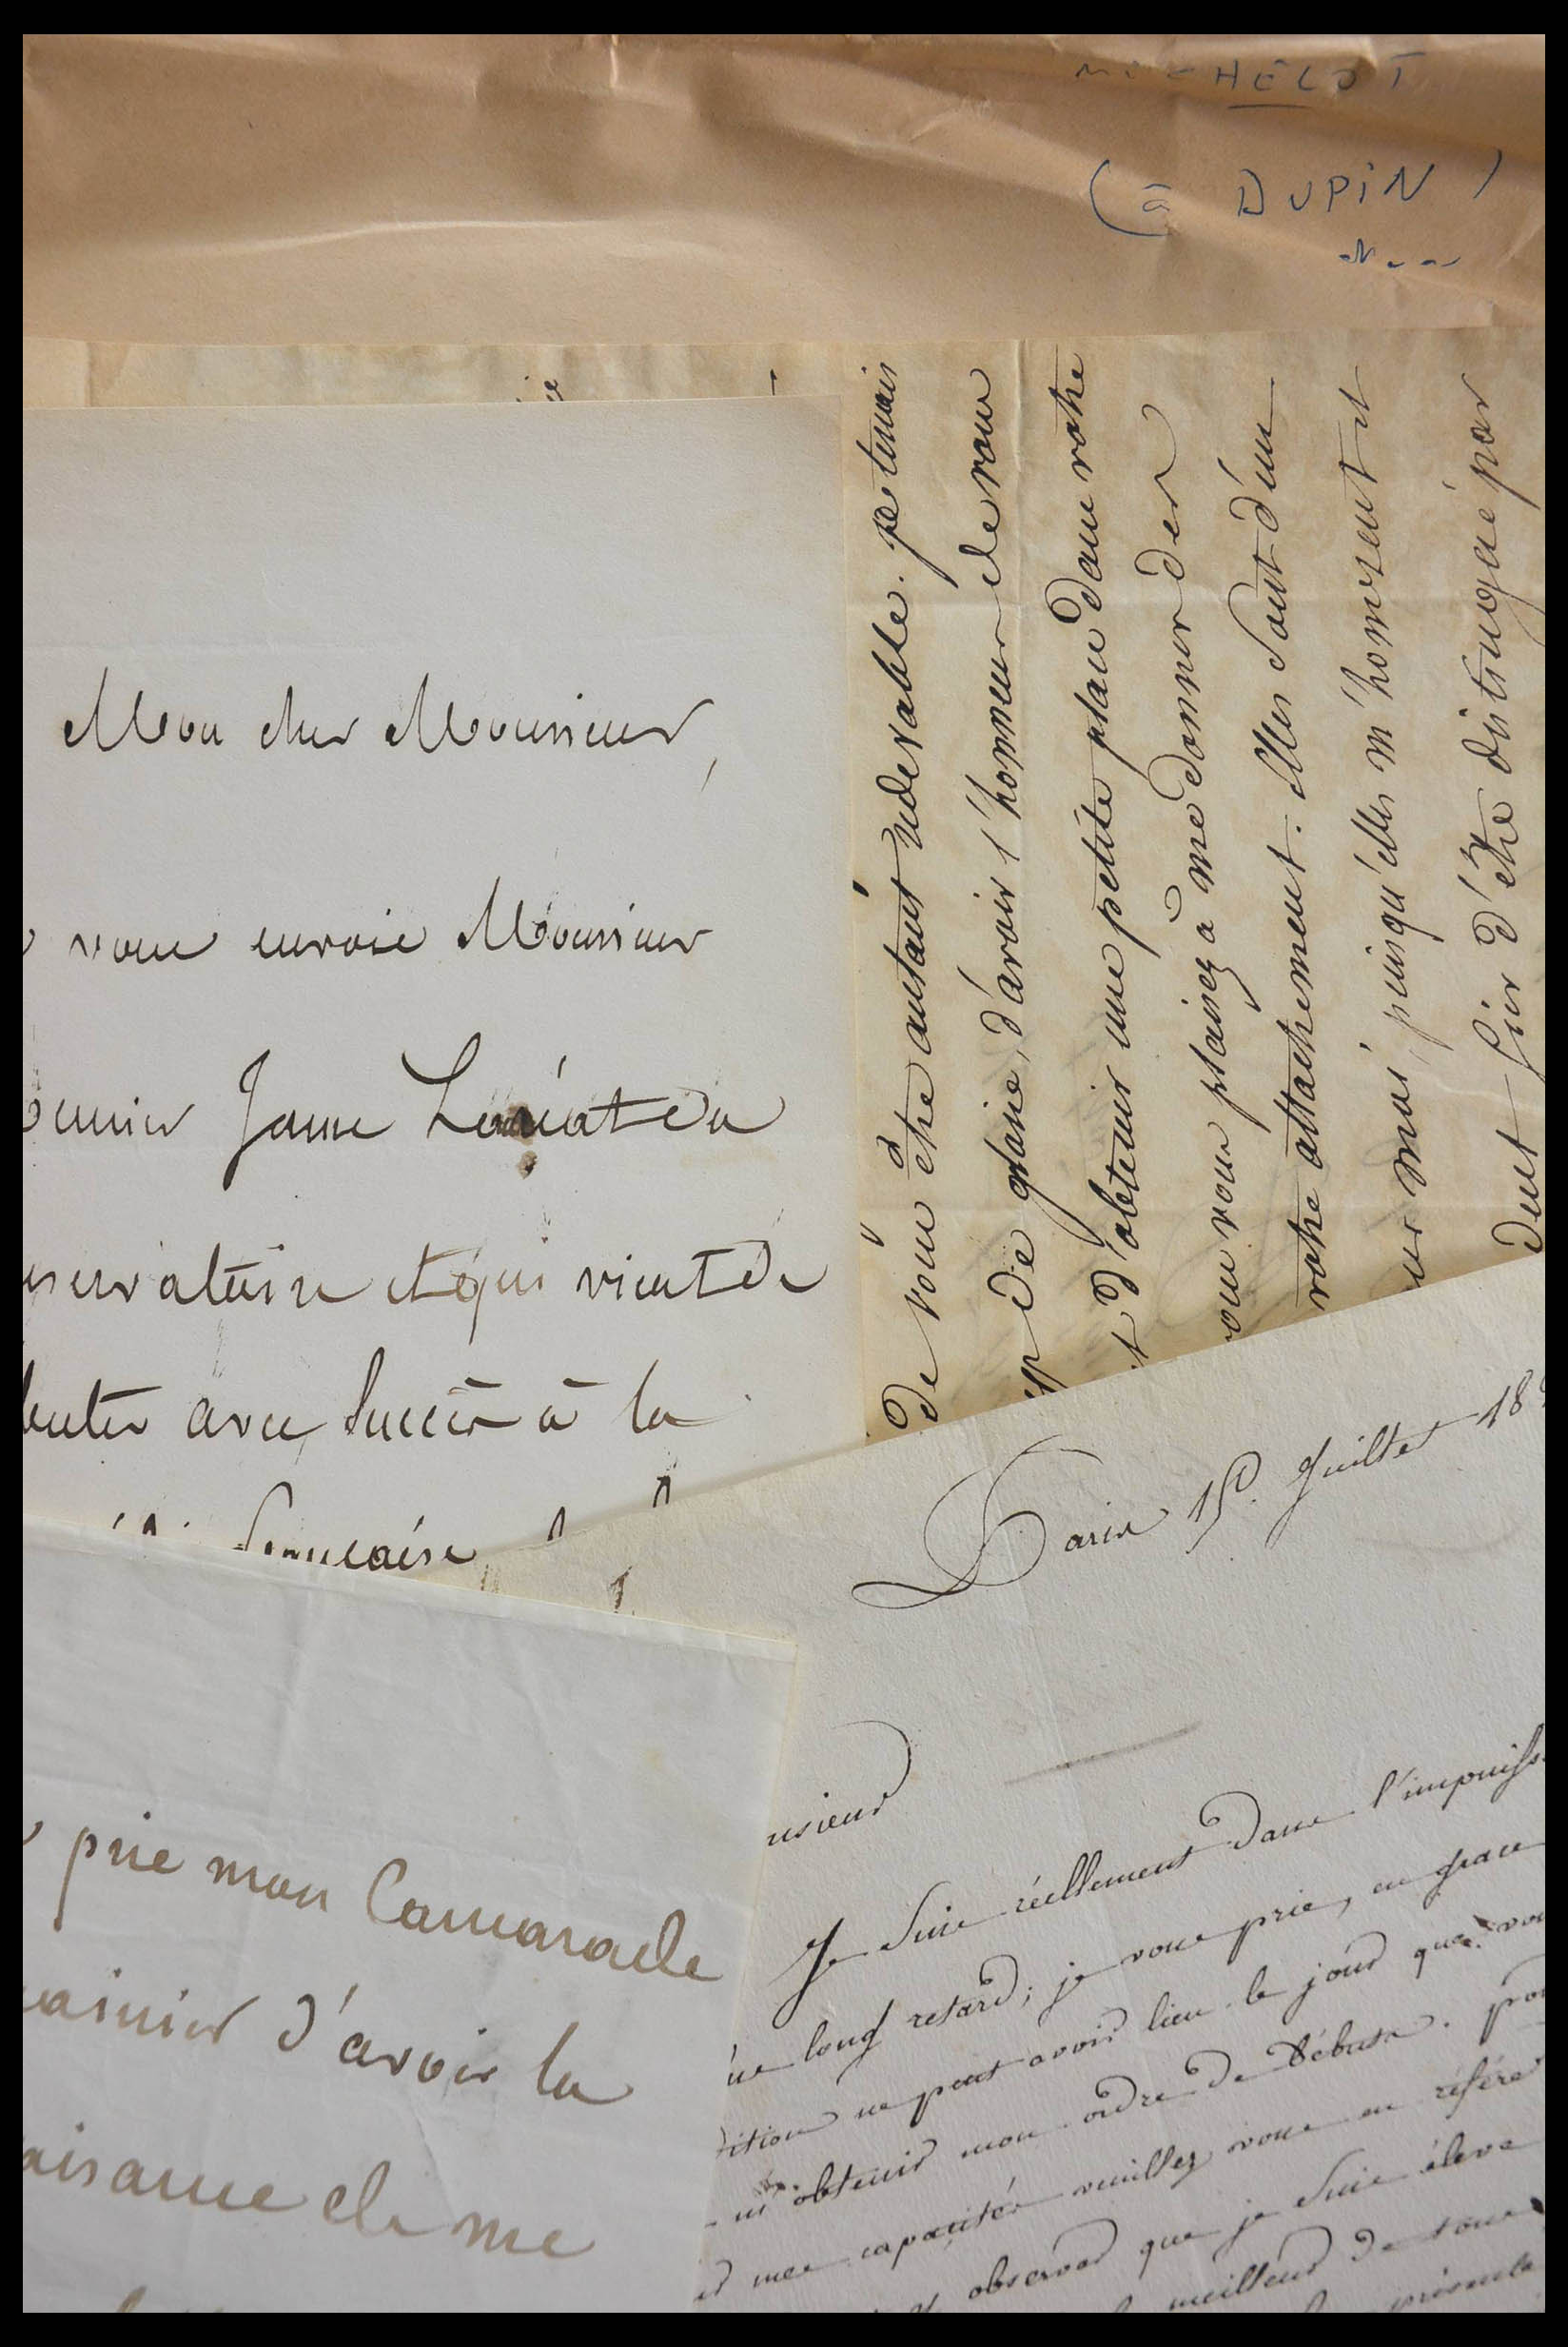 HELOT
(à DUPIN)
Mon cher Monsieur,
vous envoie Monsieur
Jame
et qui vient de
avec Succès à la
française
De vous être autant redevable. je tenais
De plaisir, d'avoir l'honneur de vous
d'obtenir une petite place dans votre
vous plaisez à me donner des
votre attachement. elles Sont d'un
moi, puisqu'elles m'honorent et
fier d'être distingué par
Paris 15 Juillet 18
usieur
Je Suis réellement dans l'impuiss
long retard; je vous prie, en grace
ition ne peut avoir lieu le jour que vou
m'obtenir mon ordre de débuts. pou
mes capacités veuillez vous en référer
observer que je Suis élève
meilleur de tous
prie mon Camarade
d'avoir la
aisance de me